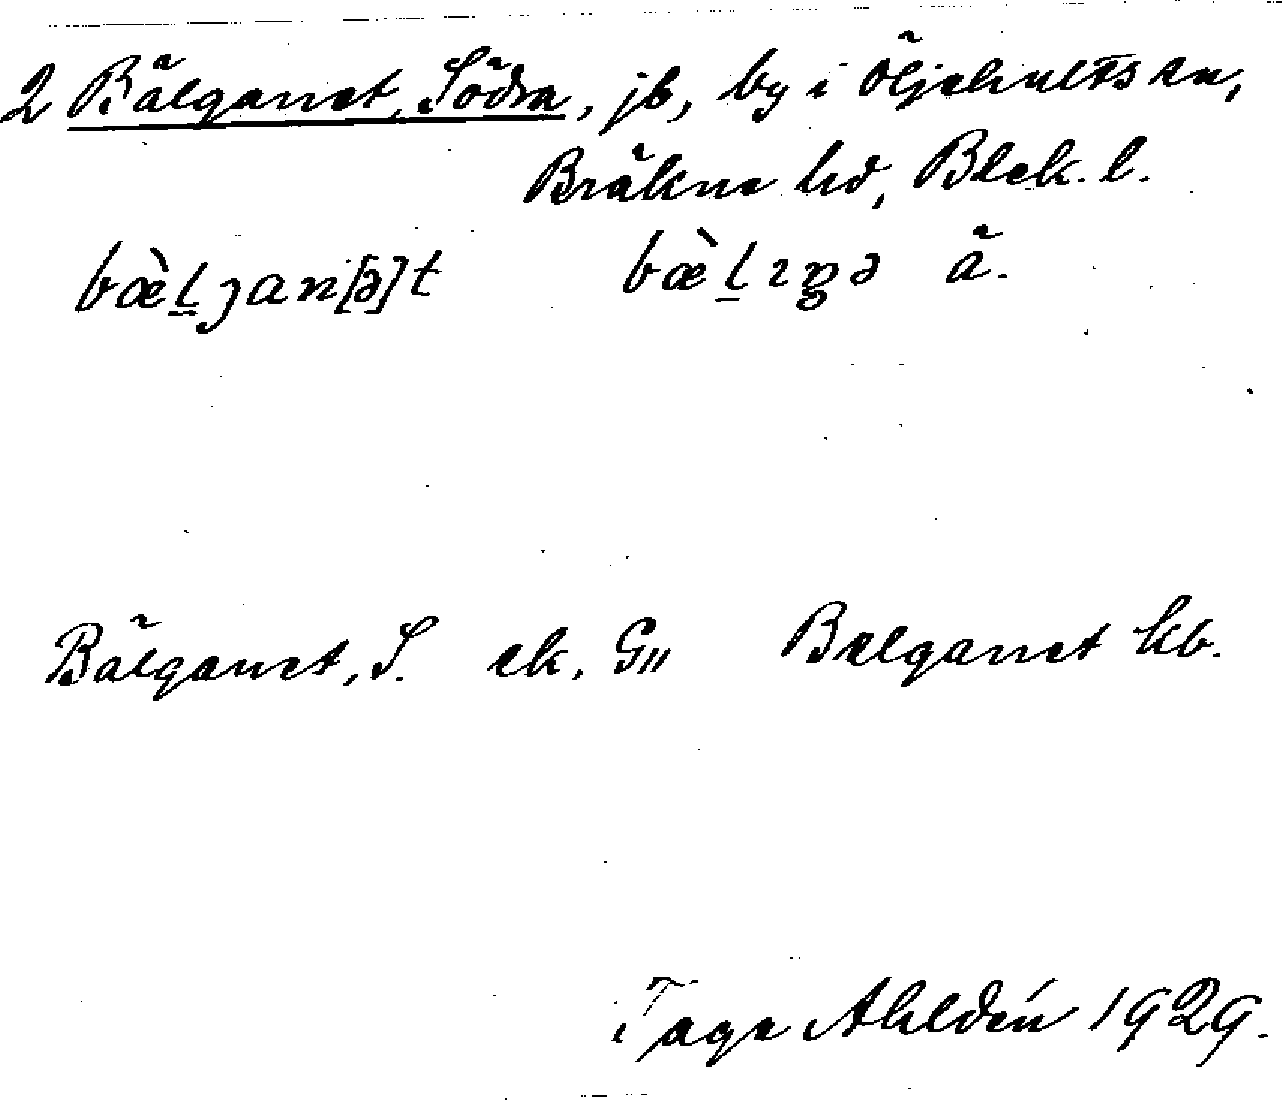 2 Bälganet, Södra, jb, by i Öljehults sn,
Bräkne hd, Blek. l.
bæ̀ḻȷan[ə]t bæ̀ḻıŋə ä.
Bälganet, S. ek. G" Belganet kb.
Tage Ahldén 1929.